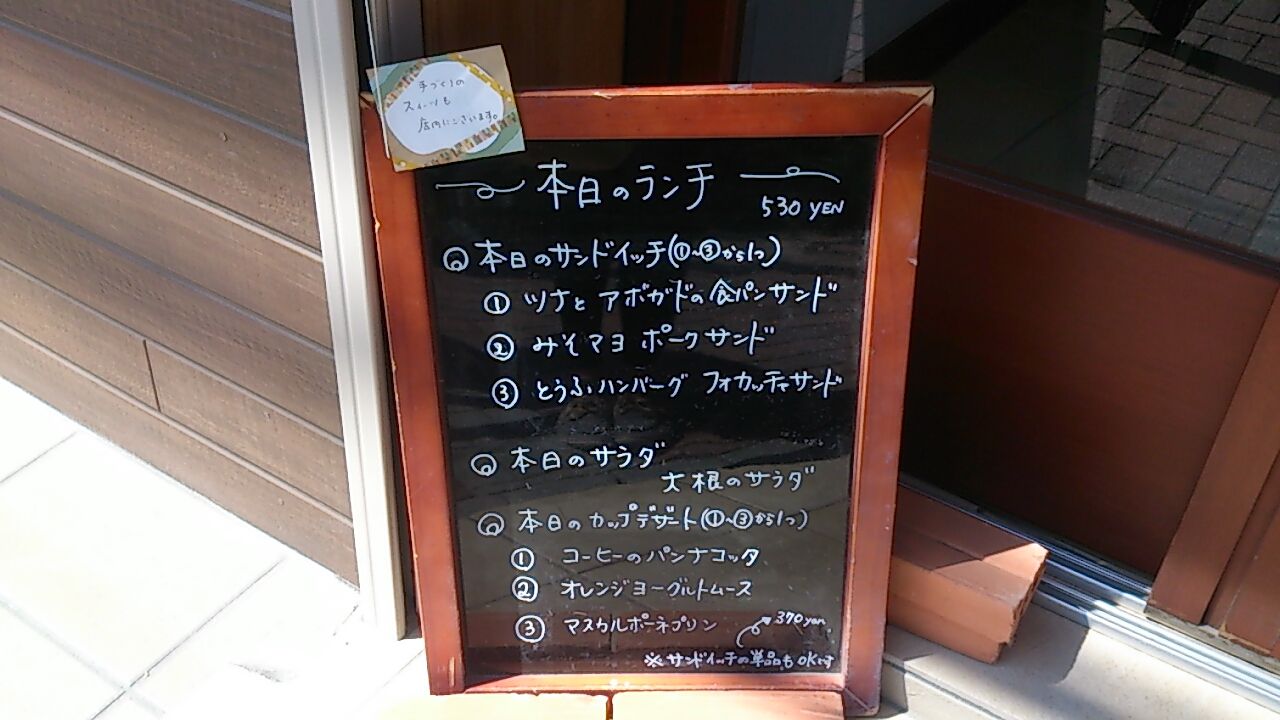 手づくりの
スイーツも
店内にございます。
本日のランチ
530 YEN
◎ 本日のサンドイッチ(①~③から1つ)
① ツナと アボガドの食パンサンド
② みそマヨ ポークサンド
③ とうふハンバーグ フォカッチャサンド
◎ 本日のサラダ
大根のサラダ
◎ 本日のカップデザート(①~③から1つ)
① コーヒーのパンナコッタ
② オレンジヨーグルトムース
③ マスカルポーネプリン
370yen
※サンドイッチの単品もOKです